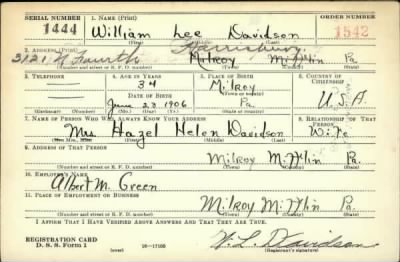 SERIAL NUMBER 1. NAME (Print) ORDER NUMBER
1444 William Lee Davidson 1542
(First) (Middle) (Last)
2. ADDRESS (Print) Harrisburg
3121 N Fourth Milroy Mifflin Pa.
(Number and street or R. F. D. number) (Town) (County) (State)
3. TELEPHONE 4. AGE IN YEARS 5. PLACE OF BIRTH 6. COUNTRY OF CITIZENSHIP
34 Milroy
DATE OF BIRTH (Town or county)
June 23 1906 Pa. U.S.A
(Exchange) (Number) (Mo.) (Day) (Yr.) (State or country)
7. NAME OF PERSON WHO WILL ALWAYS KNOW YOUR ADDRESS 8. RELATIONSHIP OF THAT PERSON
Mrs. Hazel Helen Davidson Wife
(Mr., Mrs., Miss) (First) (Middle) (Last)
9. ADDRESS OF THAT PERSON
Milroy Mifflin Pa.
(Number and street or R. F. D. number) (Town) (County) (State)
10. EMPLOYER'S NAME
Albert M. Green
11. PLACE OF EMPLOYMENT OR BUSINESS
Milroy Mifflin Pa.
(Number and street or R. F. D. number) (Town) (County) (State)
I AFFIRM THAT I HAVE VERIFIED ABOVE ANSWERS AND THAT THEY ARE TRUE.
REGISTRATION CARD
D. S. S. Form 1 (over) 16—17105 W. L. Davidson
(Registrant's signature)